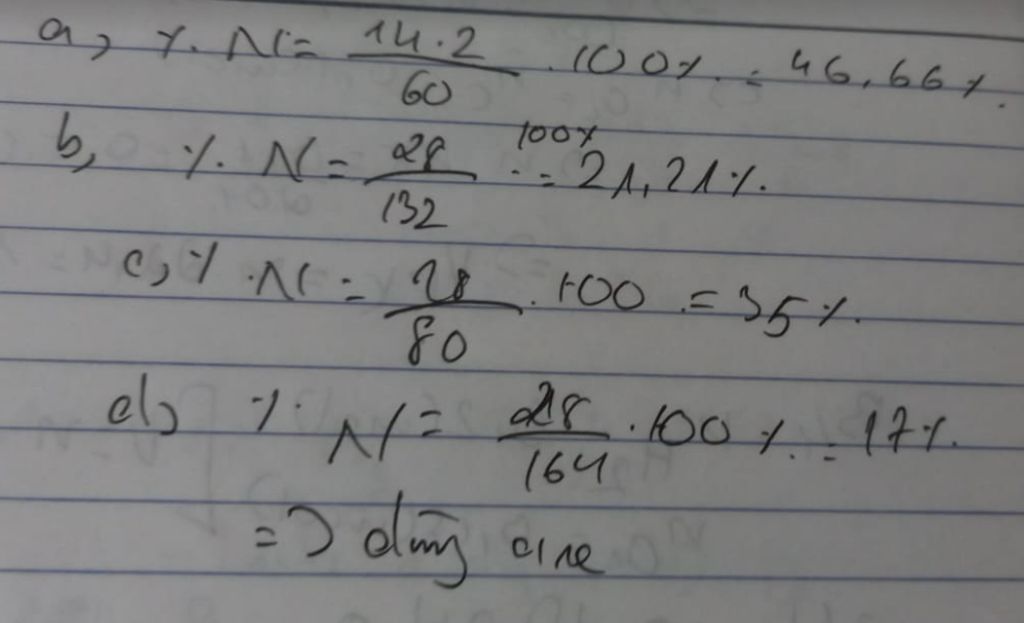 a, %N = \frac{14.2}{60} . 100% = 46,66%.
b, %N = \frac{28}{132} . 100% = 21,21%.
c, %N = \frac{28}{80} . 100 = 35%.
d, %N = \frac{28}{164} . 100% = 17%.
=> dùng ure